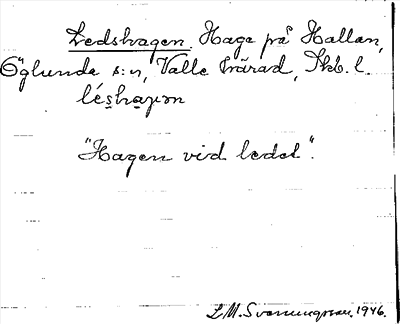 Ledshagen. Hage på Hallan,
Öglunda s:n, Valle härad, Skb. l.
léshaɡən
"Hagen vid ledet".
L.M. Svenungsson. 1946.